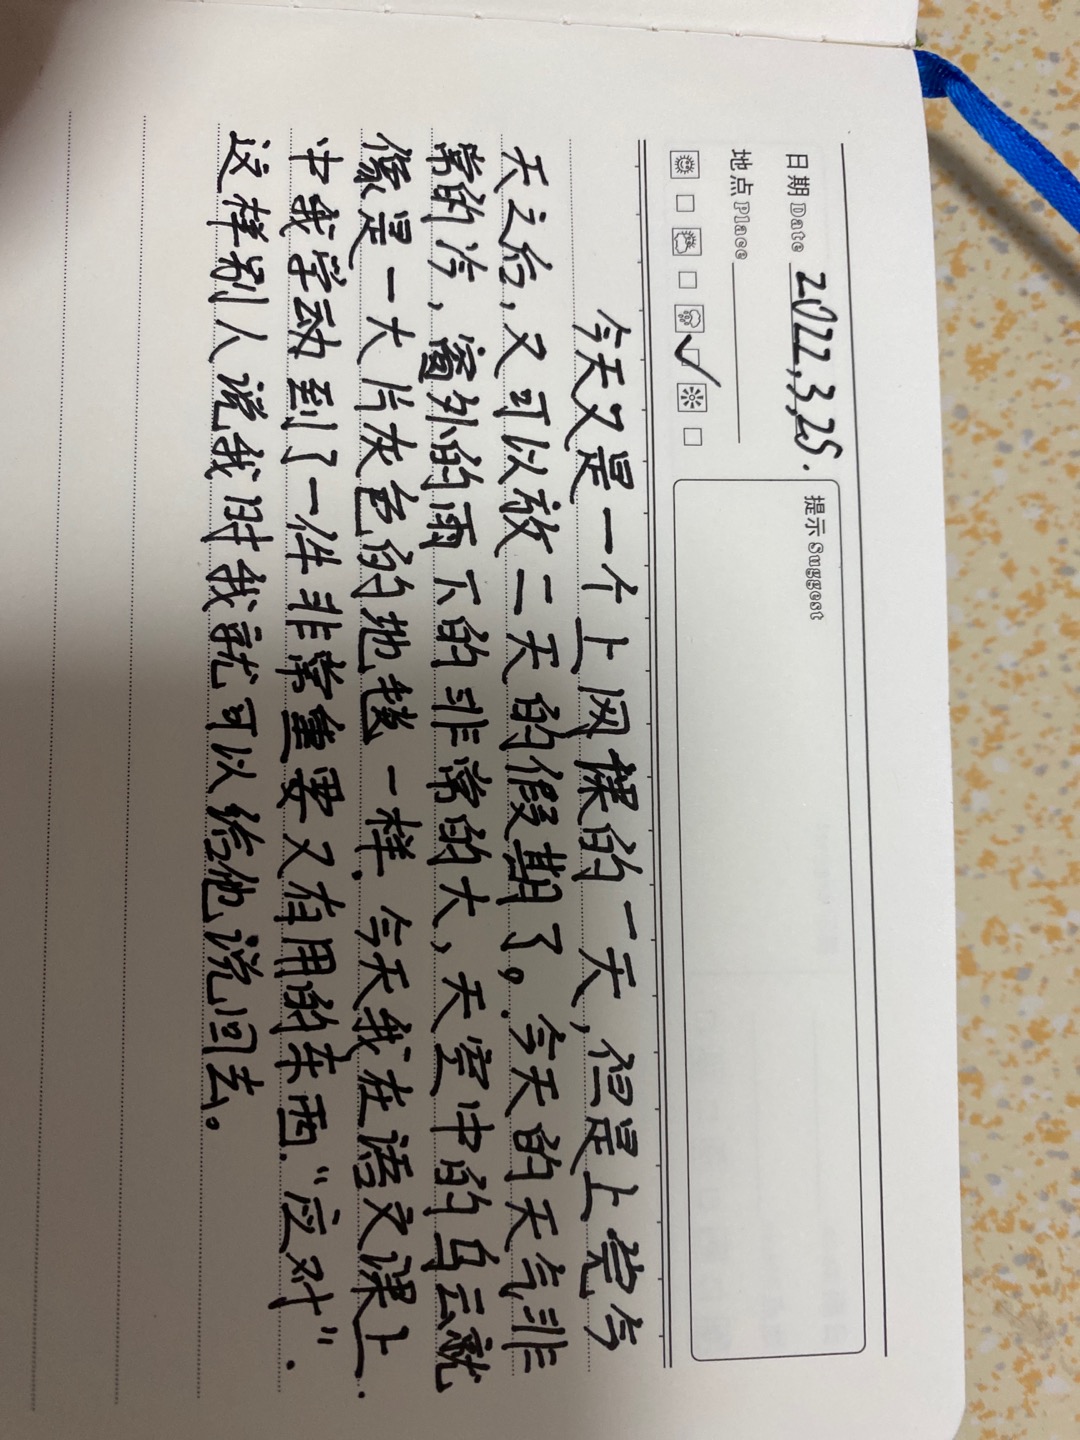 日期 Date 2022,3,25.
提示 Suggest
地点 Place
今天又是一个上网课的一天,但是上完今
天之后,又可以放二天的假期了。今天的天气非
常的冷,窗外的雨下的非常的大,天空中的乌云就
像是一大片灰色的地毯一样.今天我在语文课上.
中我学动到了一件非常重要又有用的东西."应对".
这样别人说我时我就可以给他说回去。